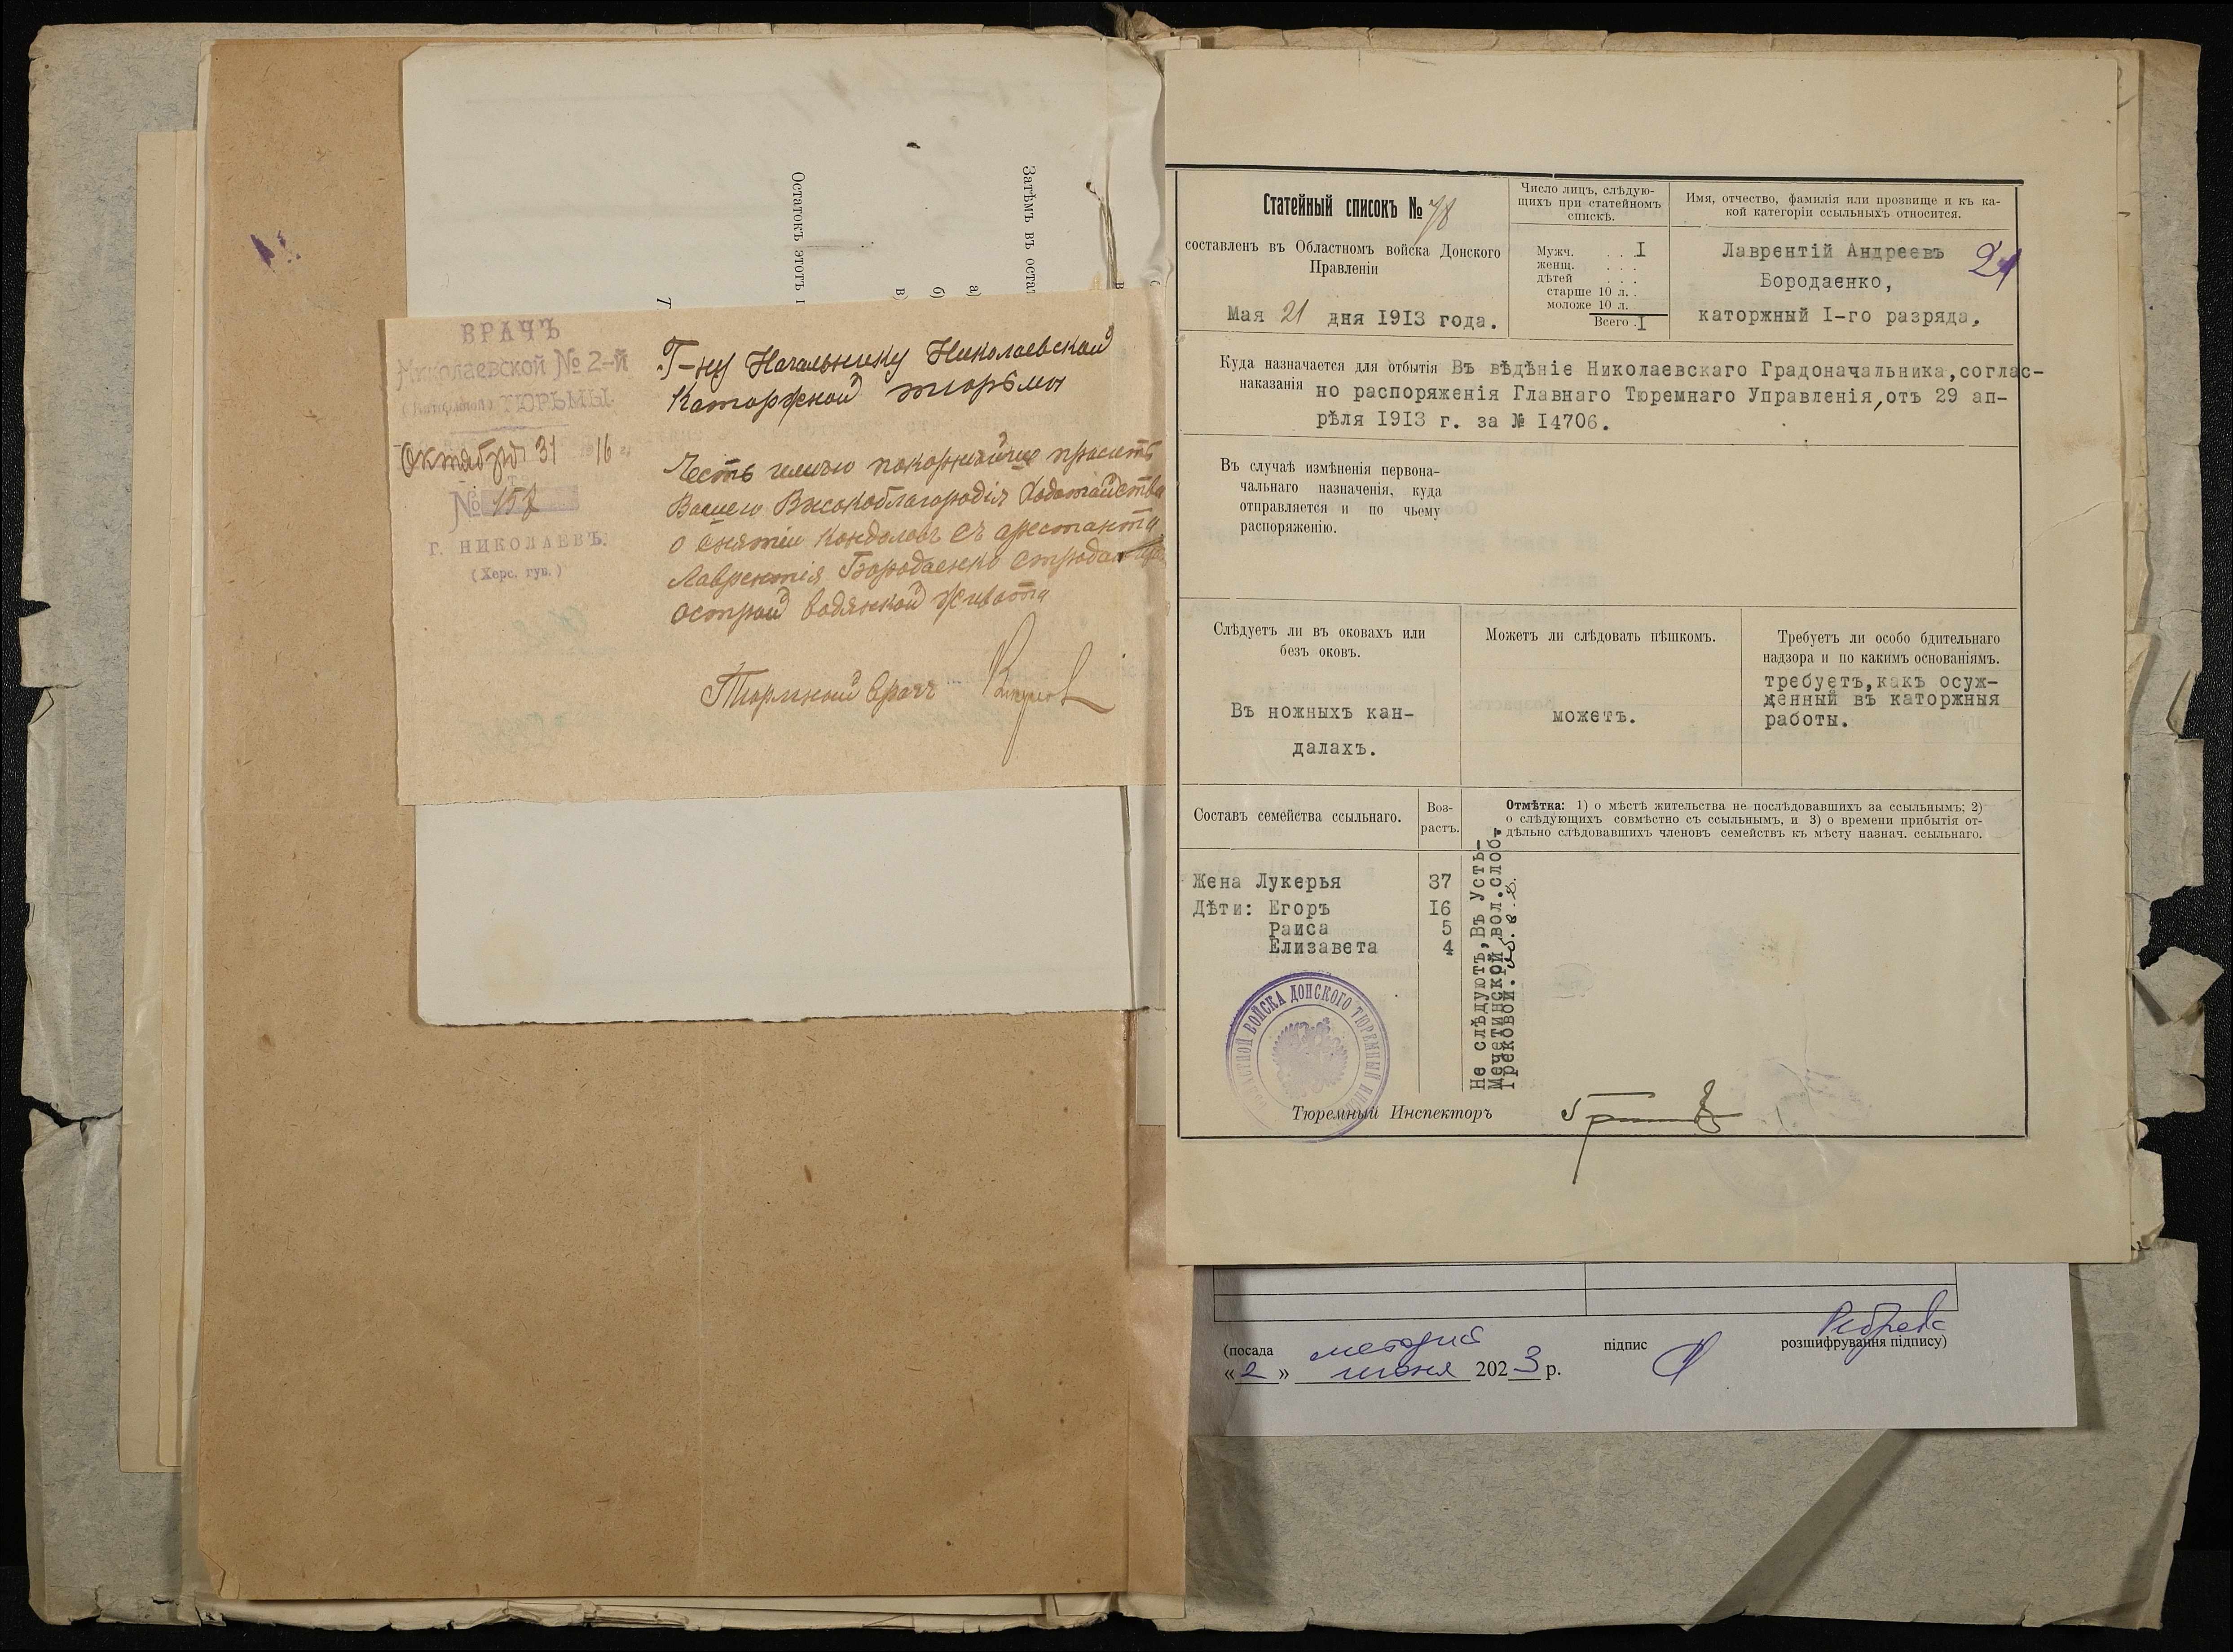 Затѣмъ въ остат
Остатокъ этотъ
а)
б)
в)
ВРАЧЪ
Николаевской № 2-й
(Каторжной) ТЮРЬМЫ.
Октября 31 1916 г.
№ 157
г. НИКОЛАЕВЪ.
(Херс. губ.)
Г-ну Начальнику Николаевской
Каторжной тюрьмы
Честь имѣю покорнѣйше просить
Вашего Высокоблагородія Ходатайства
о снятіи Кандаловъ съ арестанта
Лаврентія Бородаенко
острой водянкой живота
Тюремный врачъ
Статейный списокъ № 78
составленъ въ Областномъ войска Донского
Правленіи
Мая 21 дня 1913 года.
Число лицъ, слѣдую-
щихъ при статейномъ
спискѣ.
Мужч. . . . I
женщ. . . .
дѣтей . . .
старше 10 л. .
моложе 10 л.
Всего . I
Имя, отчество, фамилія или прозвище и къ ка-
кой категоріи ссыльныхъ относится.
Лаврентій Андреевъ
Бородаенко,
каторжный I-го разряда,
21
Куда назначается для отбытія Въ вѣдѣніе Николаевскаго Градоначальника,соглас-
наказанія но распоряженія Главнаго Тюремнаго Управленія,отъ 29 ап-
рѣля 1913 г. за № 14706.
Въ случаѣ измѣненія первона-
чальнаго назначенія, куда
отправляется и по чьему
распоряженію.
Слѣдуетъ ли въ оковахъ или
безъ оковъ.
Въ ножныхъ кан-
далахъ.
Можетъ ли слѣдовать пѣшкомъ.
можетъ.
Требуетъ ли особо бдительнаго
надзора и по какимъ основаніямъ.
требуетъ,какъ осуж-
денный въ каторжныя
работы.
Составъ семейства ссыльнаго.
Воз-
растъ.
Отмѣтка: 1) о мѣстѣ жительства не послѣдовавшихъ за ссыльнымъ; 2)
о слѣдующихъ совмѣстно съ ссыльнымъ, и 3) о времени прибытія от-
дѣльно слѣдовавшихъ членовъ семействъ къ мѣсту назнач. ссыльнаго.
Жена Лукерья 37
Дѣти: Егоръ 16
Раиса 5
Елизавета 4
Не слѣдуютъ,Въ Усть-
Мечетинской вол.слоб.
Грековой.
ОБЛАСТНОЙ ВОЙСКА ДОНСКОГО ТЮРЕМНЫЙ ИНСПЕКТОРЪ
Тюремный Инспекторъ
(посада
підпис
розшифрування підпису)
« 2 » июня 2023 р.